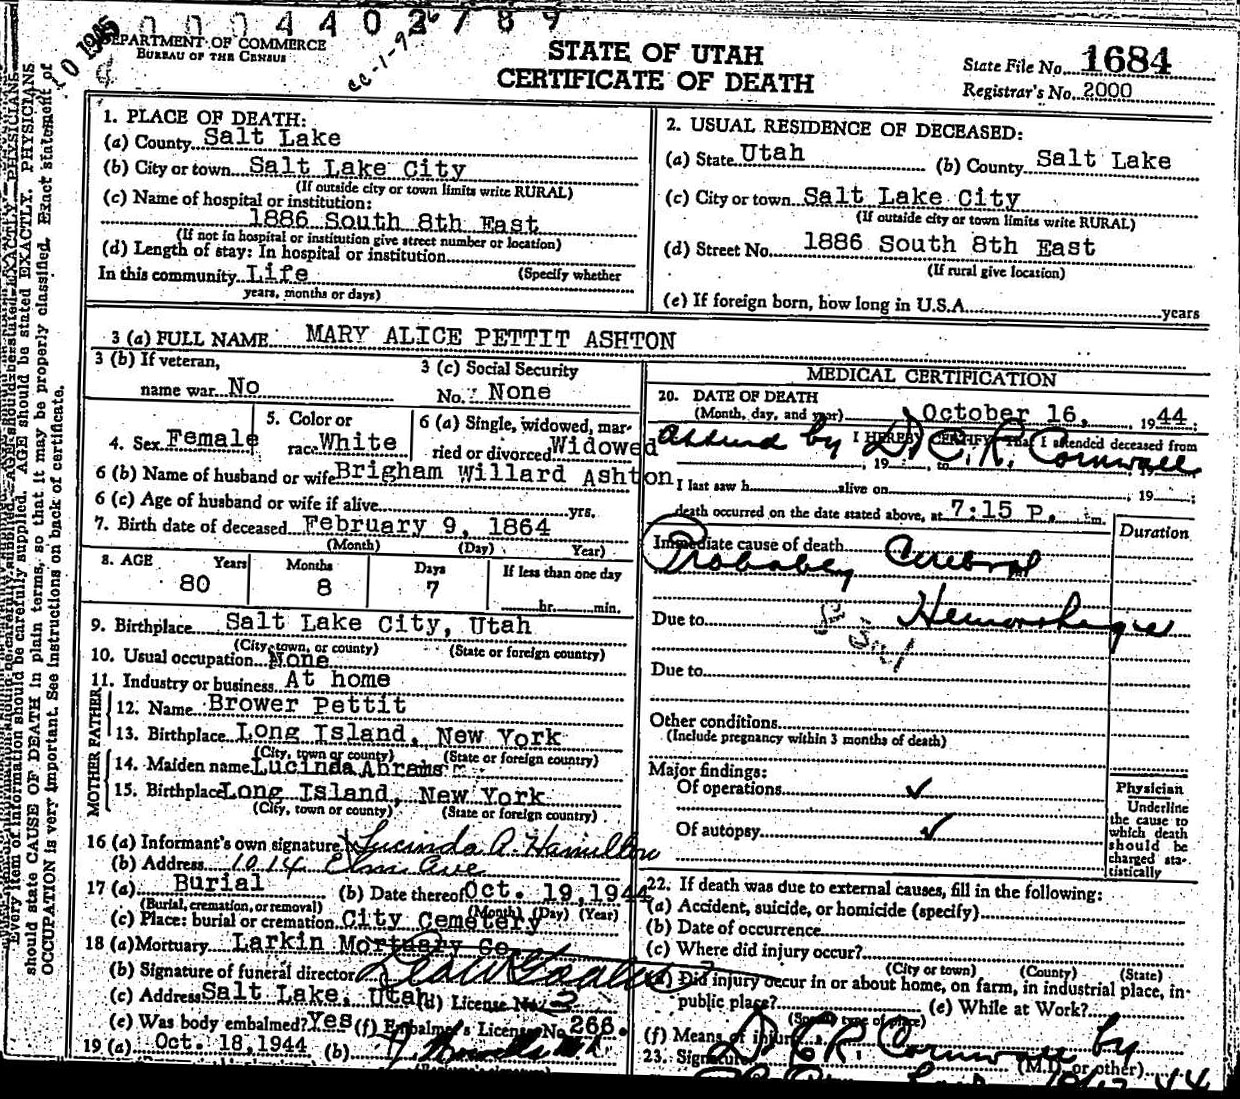 0 0 0 4 4 0 2 7 8 9
DEPARTMENT OF COMMERCE
BUREAU OF THE CENSUS
STATE OF UTAH
CERTIFICATE OF DEATH
State File No. 1684
Registrar's No. 2000
Every item of information should be carefully supplied. AGE should be stated EXACTLY. PHYSICIANS
should state CAUSE OF DEATH in plain terms, so that it may be properly classified. Exact statement of
OCCUPATION is very important. See instructions on back of certificate.
1. PLACE OF DEATH:
(a) County Salt Lake
(b) City or town Salt Lake City
(If outside city or town limits write RURAL)
(c) Name of hospital or institution:
1886 South 8th East
(If not in hospital or institution give street number or location)
(d) Length of stay: In hospital or institution
(Specify whether
In this community Life
years, months or days)
2. USUAL RESIDENCE OF DECEASED:
(a) State Utah (b) County Salt Lake
(c) City or town Salt Lake City
(If outside city or town limits write RURAL)
(d) Street No. 1886 South 8th East
(If rural give location)
(e) If foreign born, how long in U.S.A. years
3 (a) FULL NAME MARY ALICE PETTIT ASHTON
3 (b) If veteran,
name war No
3 (c) Social Security
No. None
4. Sex Female
5. Color or
race White
6 (a) Single, widowed, mar-
ried or divorced Widowed
6 (b) Name of husband or wife Brigham Willard Ashton
6 (c) Age of husband or wife if alive yrs.
7. Birth date of deceased February 9, 1864
(Month) (Day) Year)
8. AGE Years Months Days If less than one day
80 8 7 hr. min.
9. Birthplace Salt Lake City, Utah
(City, town, or county) (State or foreign country)
10. Usual occupation None
11. Industry or business At home
FATHER
12. Name Brower Pettit
13. Birthplace Long Island, New York
(City, town or county) (State or foreign country)
MOTHER
14. Maiden name Lucinda Abrams
15. Birthplace Long Island, New York
(City, town or county) (State or foreign country)
16 (a) Informant's own signature Lucinda A. Hamilton
(b) Address 1014 Elm Ave
17 (a) Burial (b) Date thereof Oct. 19, 1944
(Burial, cremation, or removal) (Month) (Day) (Year)
(c) Place: burial or cremation City Cemetery
18 (a) Mortuary Larkin Mortuary Co.
(b) Signature of funeral director
(c) Address Salt Lake, Utah (d) License No. 3
(e) Was body embalmed? Yes (f) Embalmer's License No. 266.
19 (a) Oct. 18, 1944 (b)
MEDICAL CERTIFICATION
20. DATE OF DEATH
(Month, day, and year) October 16, 1944;
I HEREBY CERTIFY That I attended deceased from
by Dr C. R. Cornwall
, 19 , to
I last saw h alive on , 19 ;
death occurred on the date stated above, at 7:15 P. m.
Duration
Immediate cause of death Cerebral
Probably
Due to Hemorrhage
Due to
Other conditions
(Include pregnancy within 3 months of death)
Major findings:
Of operations ✓
Of autopsy ✓
Physician
Underline
the cause to
which death
should be
charged sta-
tistically
22. If death was due to external causes, fill in the following:
(a) Accident, suicide, or homicide (specify)
(b) Date of occurrence
(c) Where did injury occur?
(City or town) (County) (State)
Did injury occur in or about home, on farm, in industrial place, in
public place? (e) While at Work?
(Specify type of place)
(f) Means of injury
23. Signature Dr C. R. Cornwall by
(M.D. or other)